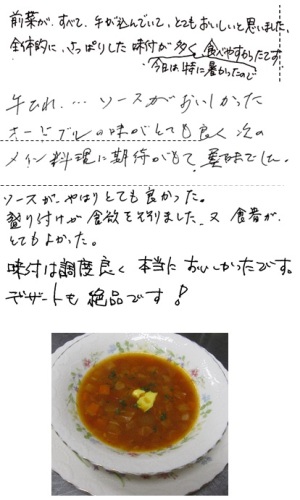 前菜が、すべて、手が込んでいて、とてもおいしいと思いました。
全体的に、さっぱりした味付が多く、食べやすかったです。
今日は特に暑かったので
牛ひれ… ソースがおいしかった
オードブルの味がとても良く 次の
メイン料理に期待がもて、美味でした。
ソースが やはりとても良かった。
盛り付けが 食欲をそそりました、又 食器が
とてもよかった。
味付は調度良く 本当に おいしかったです。
デザートも 絶品です!